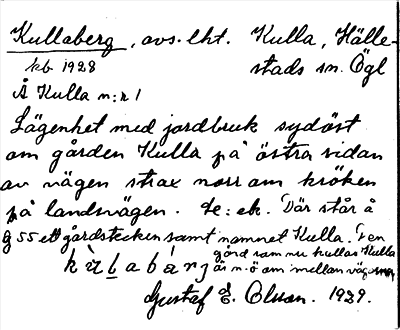 Kullaberg, avs. lht. Kulla, Hälle-
kb 1928 stads sn. Ögl
Å Kulla n:r 1
Lägenhet med jordbruk sydöst
om gården Kulla på östra sidan
av vägen strax norr om kröken
på landsvägen. Le: ek. Där står å
G 55 ett gårdstecken samt namnet Kulla. Den
gård som nu kallas Kulla
är n. ö om mellan vägarna
kùlabárj
Gustaf E. Olsson. 1929.